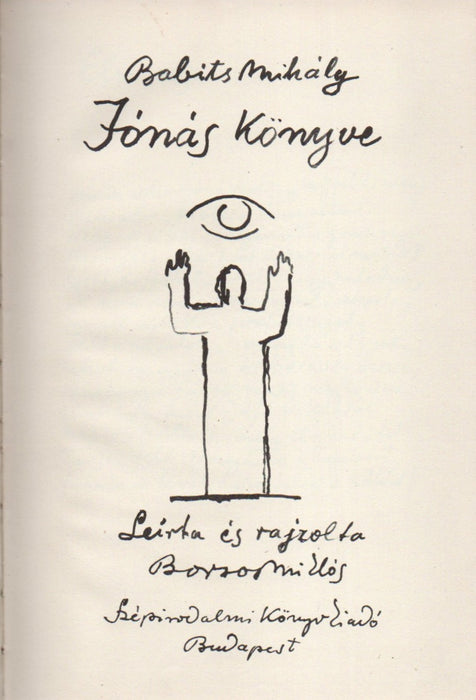 Babits Mihály
Jónás Könyve
Leírta és rajzolta
Borsos Miklós
Szépirodalmi Könyvkiadó
Budapest